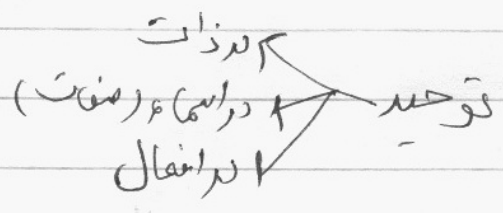 توحید
در ذات
در اسماء (صفات)
در افعال